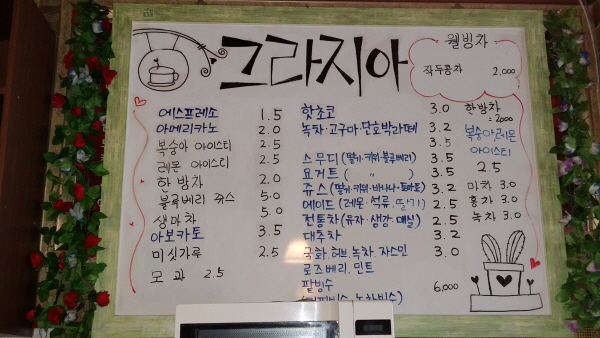 그라지아
웰빙차
작두콩차 2.000
에스프레소 1.5
아메리카노 2.0
복숭아 아이스티 2.5
레몬 아이스티 2.5
한방차 2.0
블루베리 쥬스 5.0
생마차 5.0
아보카토 3.5
미싯가루 2.5
모과 2.5
핫쵸코 3.0
녹차·고구마·단호박라떼 3.2
3.5
스무디(딸기·키위·블루베리) 3.5
요거트 ( " ) 3.5
쥬스(딸기·키위·바나나·토마토) 3.2
에이드(레몬·석류,딸기) 3.5
전통차(유자·생강·매실) 2.5
대추차 3.2
국화,허브,녹차,자스민 3.0
로즈베리,민트
팥빙수 6.000
한방차
=2000
복숭아레몬
아이스티
2.5
마차 3.0
홍차 3.0
녹차 3.0